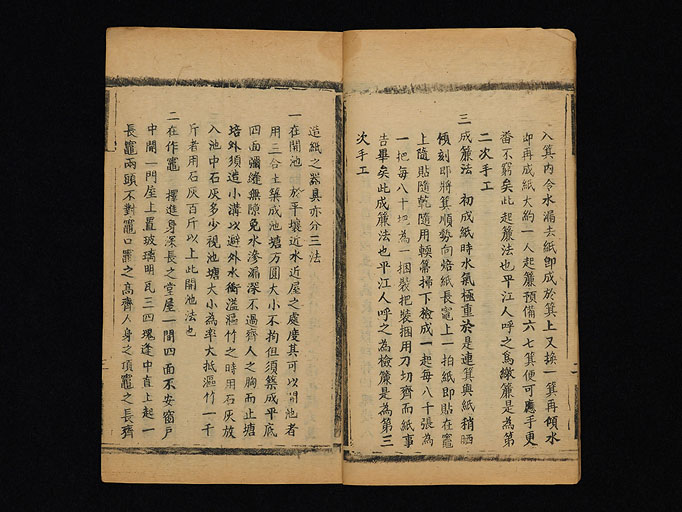 入箕内令水漏去紙即成於箕上又換一箕再傾水
即再成紙大約一人起簾預備六七箕便可應手更
番不窮矣此起簾法也平江人呼之為繳簾是為第
二次手工
三成簾法　初成紙時水氣極重於是連箕與紙稍晒
傾刻即將箕順勢向焙紙長竈上一拍紙即貼在竈
上隨貼隨乾隨用輭箒掃下檢成一起每八十張為
一把每八十把為一捆裝把裝捆用刀切齊而紙事
告畢矣此成簾法也平江人呼之為檢簾是為第三
次手工
造紙之器具亦分三法
一在開池　於平壤近水近屋之處度其可以開池者
用三合土築成池塘方圓大小不拘但須築成平底
四面彌縫無隙免水滲漏深不過齊人之胸而止塘
培外須造小溝以避外水衝溢漚竹之時用石灰放
入池中石灰多少視池塘大小為率大抵漚竹一千
斤者用石灰百斤以上此開池法也
二在作竈　擇進身深長之堂屋一間四面不安窗戶
中開一門屋上置玻璃明瓦三四塊逢中直上起一
長竈兩頭不對竈口竈之高齊人身之頂竈之長齊